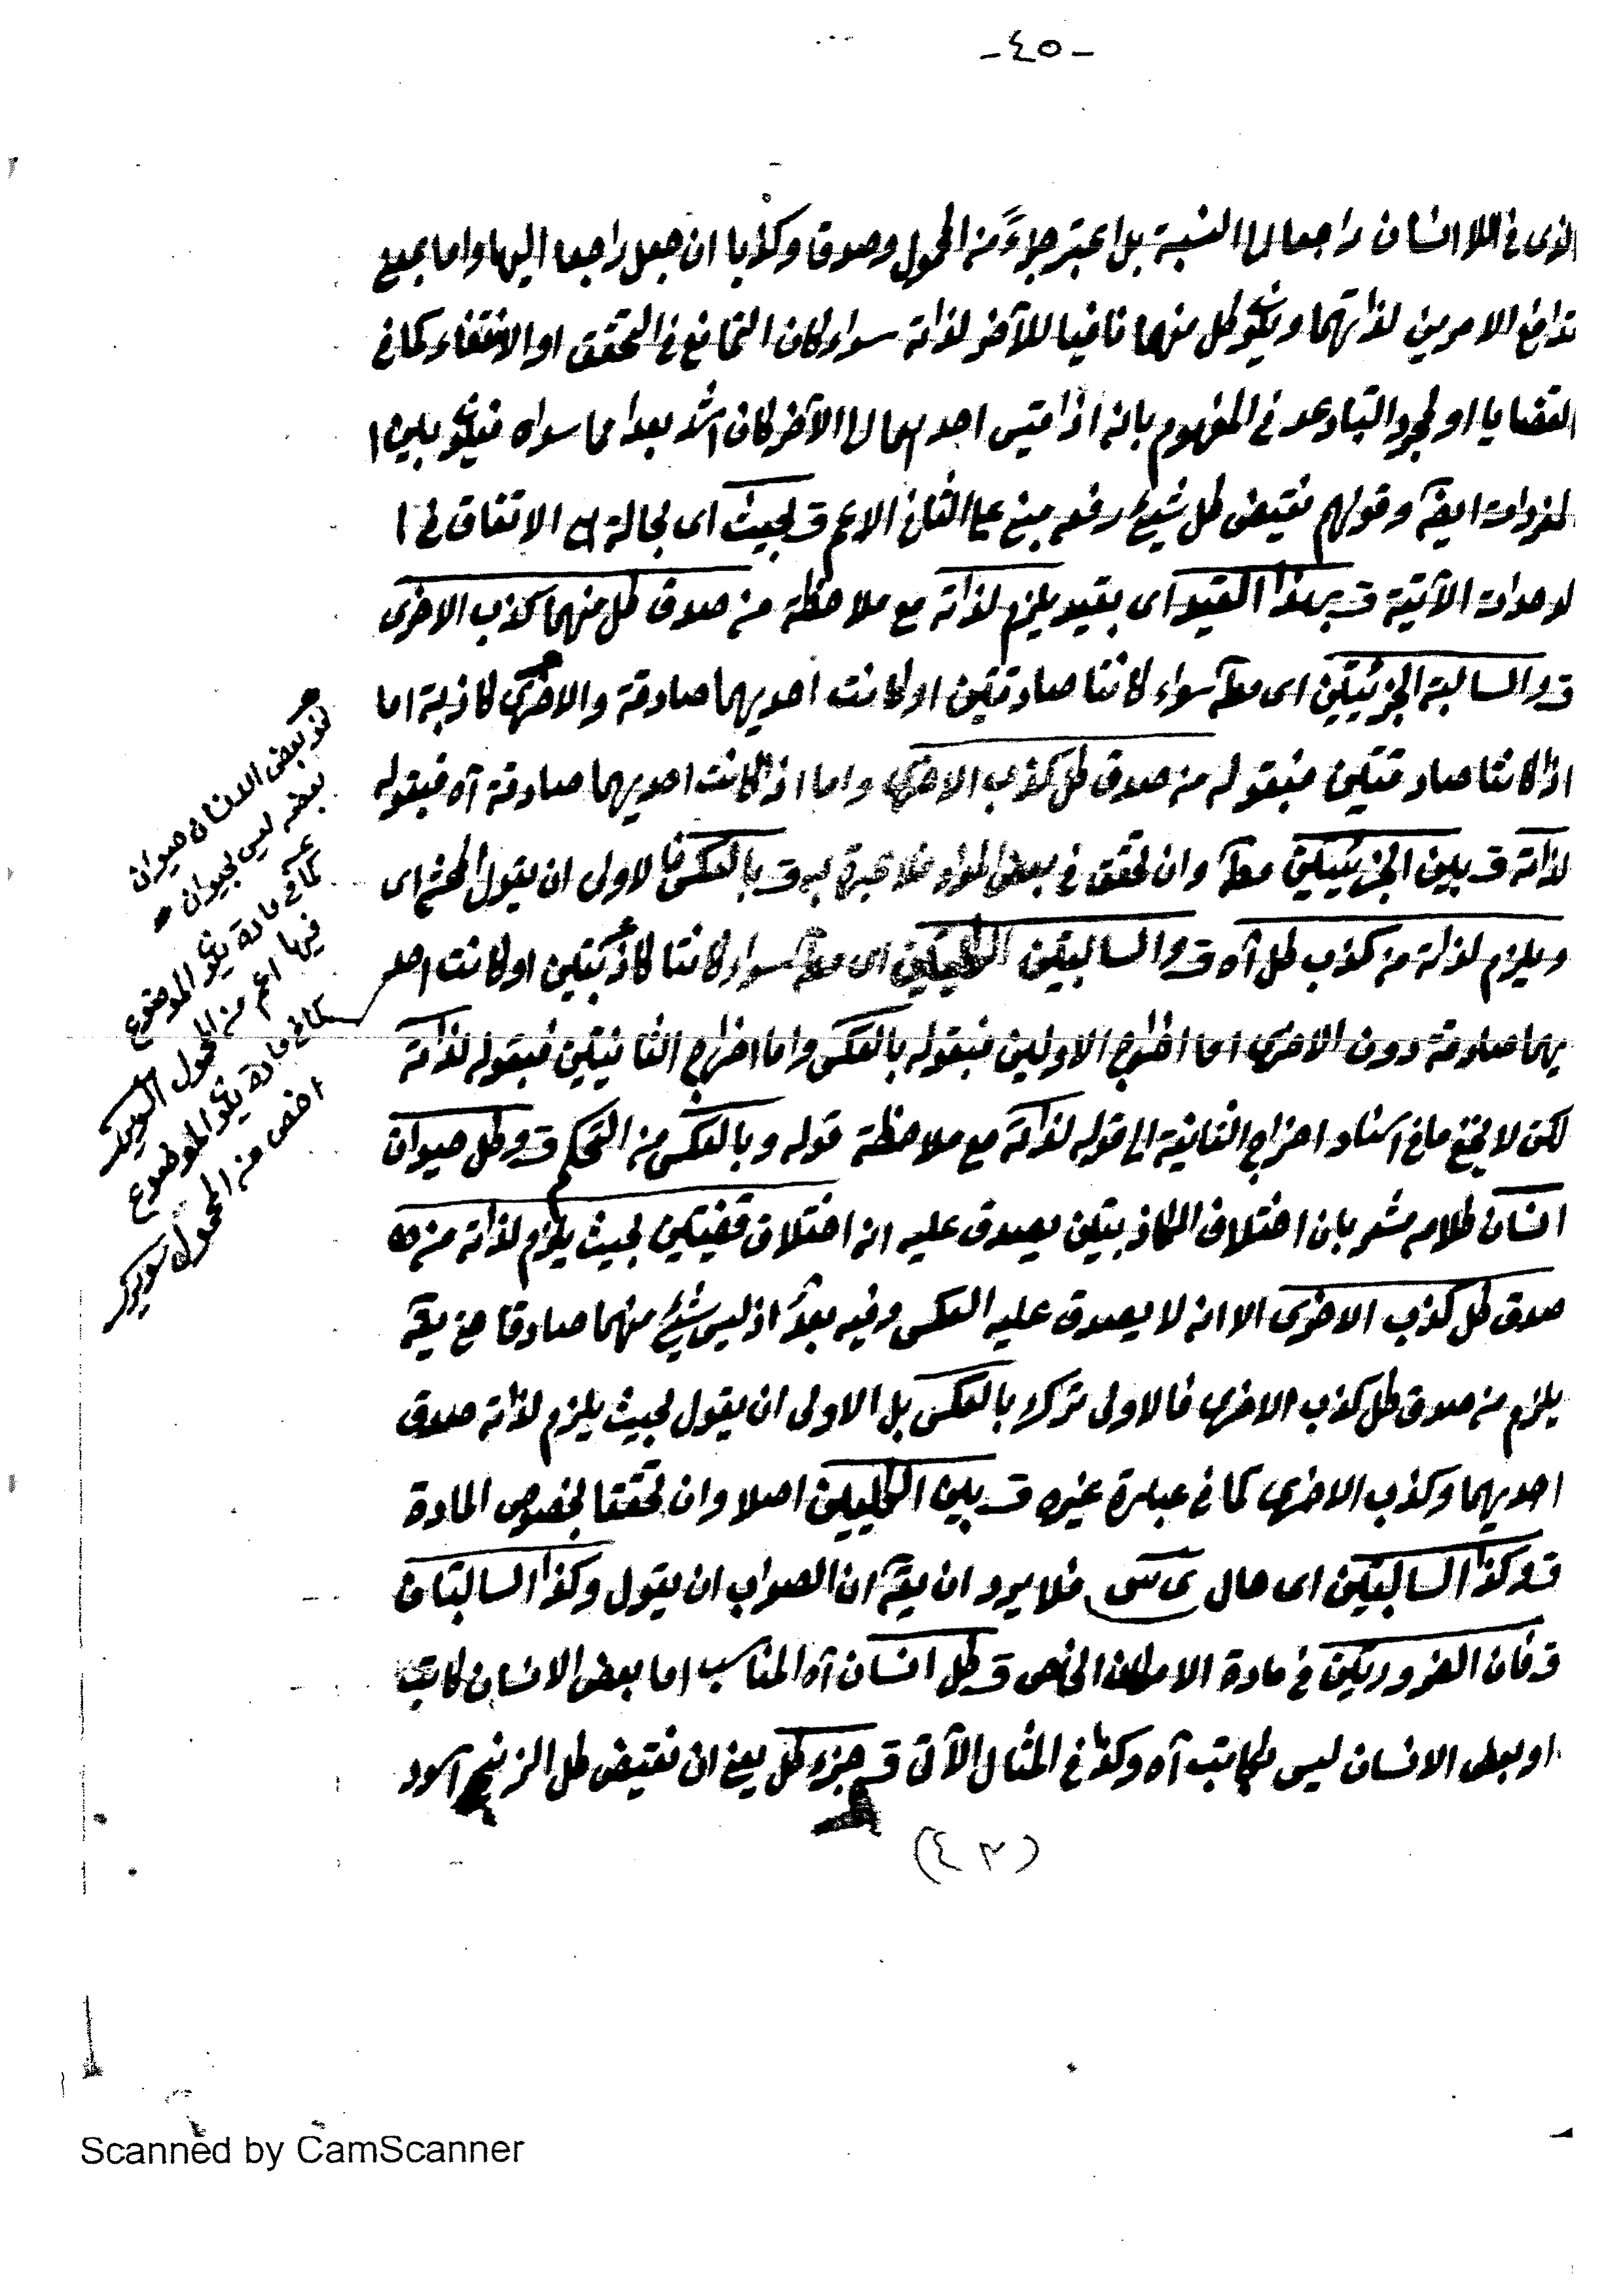 -٤٥-
الذى فى اللا انسان راجعا الى النسبة بل اعتبر جزاءً من المحمول وصدقا وكذبا ان جعل راجعا اليها واما بمعنى
تدافع الامرين لذاتهما ويكو كل منهما نافيا للآخر لذاته سواء كان التمانع فى التحقق او الانتفاء كما فى
القضايا او لمجرد التباعد فى المفهوم بانه اذا قيس احدهما الى الآخر كان اشد بعدا مما سواه فيكو بين ا
لمفردات ايضا وقولهم نقيض كل شيئ رفعه مبنى على الثانى الاعم قـ بحيث اى بحالة هى الاتفاق فى ا
لوحدات الآتية قـ بهذا القيد اى بقيد يلزم لذاته مع ملاحظة من صدق كل منهما كذب الاخرى
قـ والسالبة الجزئيتين اى معا سواء كانتا صادقتين او كانت احديهما صادقة والاخرى كاذبة اما
اذا كانتا صادقتين فبقوله من صدق كل كذب الاخرى واما اذا كانت احديهما صادقة آه فبقوله
لذاته قـ بين الجزئيتين معا وان تحقق فى بعض المواد فلا عبرة به قـ بالعكس الاولى ان يقول المحشى اى
ويلزم لذاته من كذب كل آه قـ والسالبتين الكليتين اى معا سواء كانتا كاذبتين او كانت احد
يهما صادقة دون الاخرى اما اخراج الاوليين فبقوله بالعكس واما اخراج الثانيتين فبقوله لذاته
لكن لا يخفى ما فى اسناد اخراج الثانية الى قوله لذاته مع ملاحظة قوله وبالعكس من التحكم قـ وكل حيوان
انسان كلامه مشعر بان اختلاف الكاذبتين يصدق عليه انه اختلاف قضيتين بحيث يلزم لذاته من
صدق كل كذب الاخرى الا انه لا يصدق عليه العكس وفيه بعدُ اذ ليس شيئ منهما صادقا حتى يقا
يلزم من صدق كل كذب الاخرى فالاولى ترك بالعكس بل الاولى ان يقول بحيث يلزم لذاته صدق
احديهما وكذب الاخرى كما فى عبارة غيره قـ بين الكليتين اصلا وان تحققا لخصوص المادة
قـ وكذا السالبتين اى حال فلا يرد ان يقا ان الصواب ان يقول وكذا السالبتان
قـ فان الضروريتين فى مادة الامكان الخاص قـ كل انسان آه المناسب اما بعض الانسان كاتب
او بعض الانسان ليس بكاتب آه وكذا فى المثال الآتى قـ جزء كل يعنى ان نقيض كل الزنجى اسود
(٤٣)
نحو بعض الانسان حيوان
بعضه ليس بحيوان
كما فى مادة يكو الموضوع
فيها اعم من المحمول
كما فى مادة يكو الموضوع
اخص من المحمول
Scanned by CamScanner